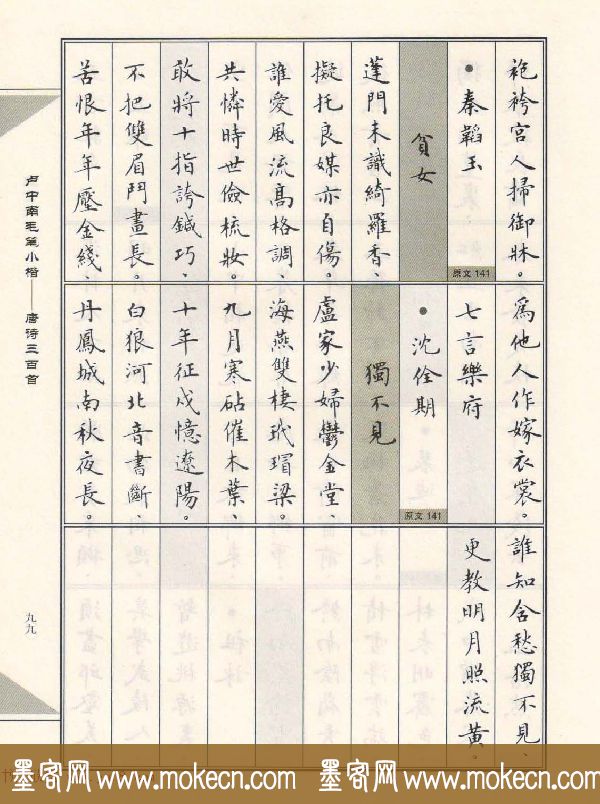 袍袴宮人掃御牀。
•秦韜玉
貧女
原文 141
蓬門未識綺羅香、
擬托良媒亦自傷。
誰愛風流高格調、
共憐時世儉梳妝。
敢將十指誇鍼巧、
不把雙眉鬥畫長。
苦恨年年壓金綫、
爲他人作嫁衣裳。
七言樂府
•沈佺期
獨不見
原文 141
盧家少婦鬱金堂、
海燕雙棲玳瑁梁。
九月寒砧催木葉、
十年征戍憶遼陽。
白狼河北音書斷、
丹鳳城南秋夜長。
誰知含愁獨不見、
更教明月照流黃。
卢中南毛笔小楷——唐诗三百首
九九
墨客网 www.mokecn.com 墨客网 www.mokecn.com